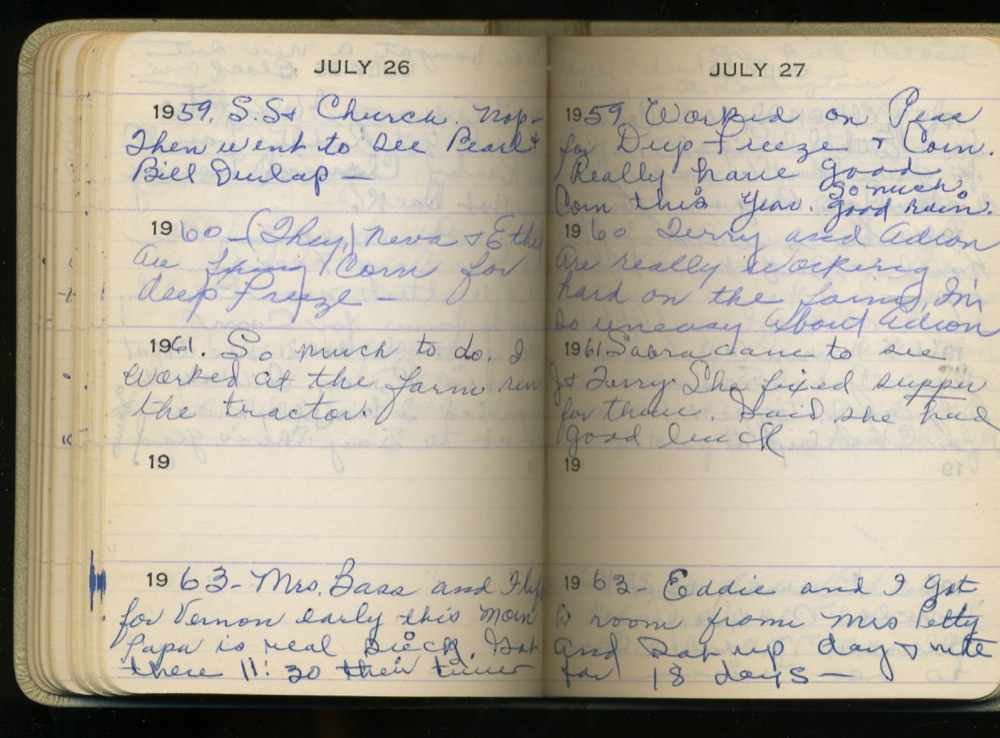 JULY 26
1959. S.S+ Church. Nap-
Then went to see Pearl +
Bill Dunlap —
1960 - (They) Neva + Ethel
are fixing Corn for
deep freeze —
1961. So much to do. I
worked at the farm run
the tractor.
19
1963 - Mrs. Bass and I left
for Vernon early this morn
Papa is real sick. Got
there 11:30 their time
JULY 27
1959 Worked on Peas
for Deep freeze + Corn.
Really have good
Corn this year. So much good rain.
1960 Terry and Adron
are really working
hard on the farming I'm
so uneasy about Adron
1961 Sabra came to see
J + Terry. She fixed supper
for them. Said she had
good luck
19
1963 - Eddie and I got
a room from Mrs Petty
and sat up day & nite
for 18 days —